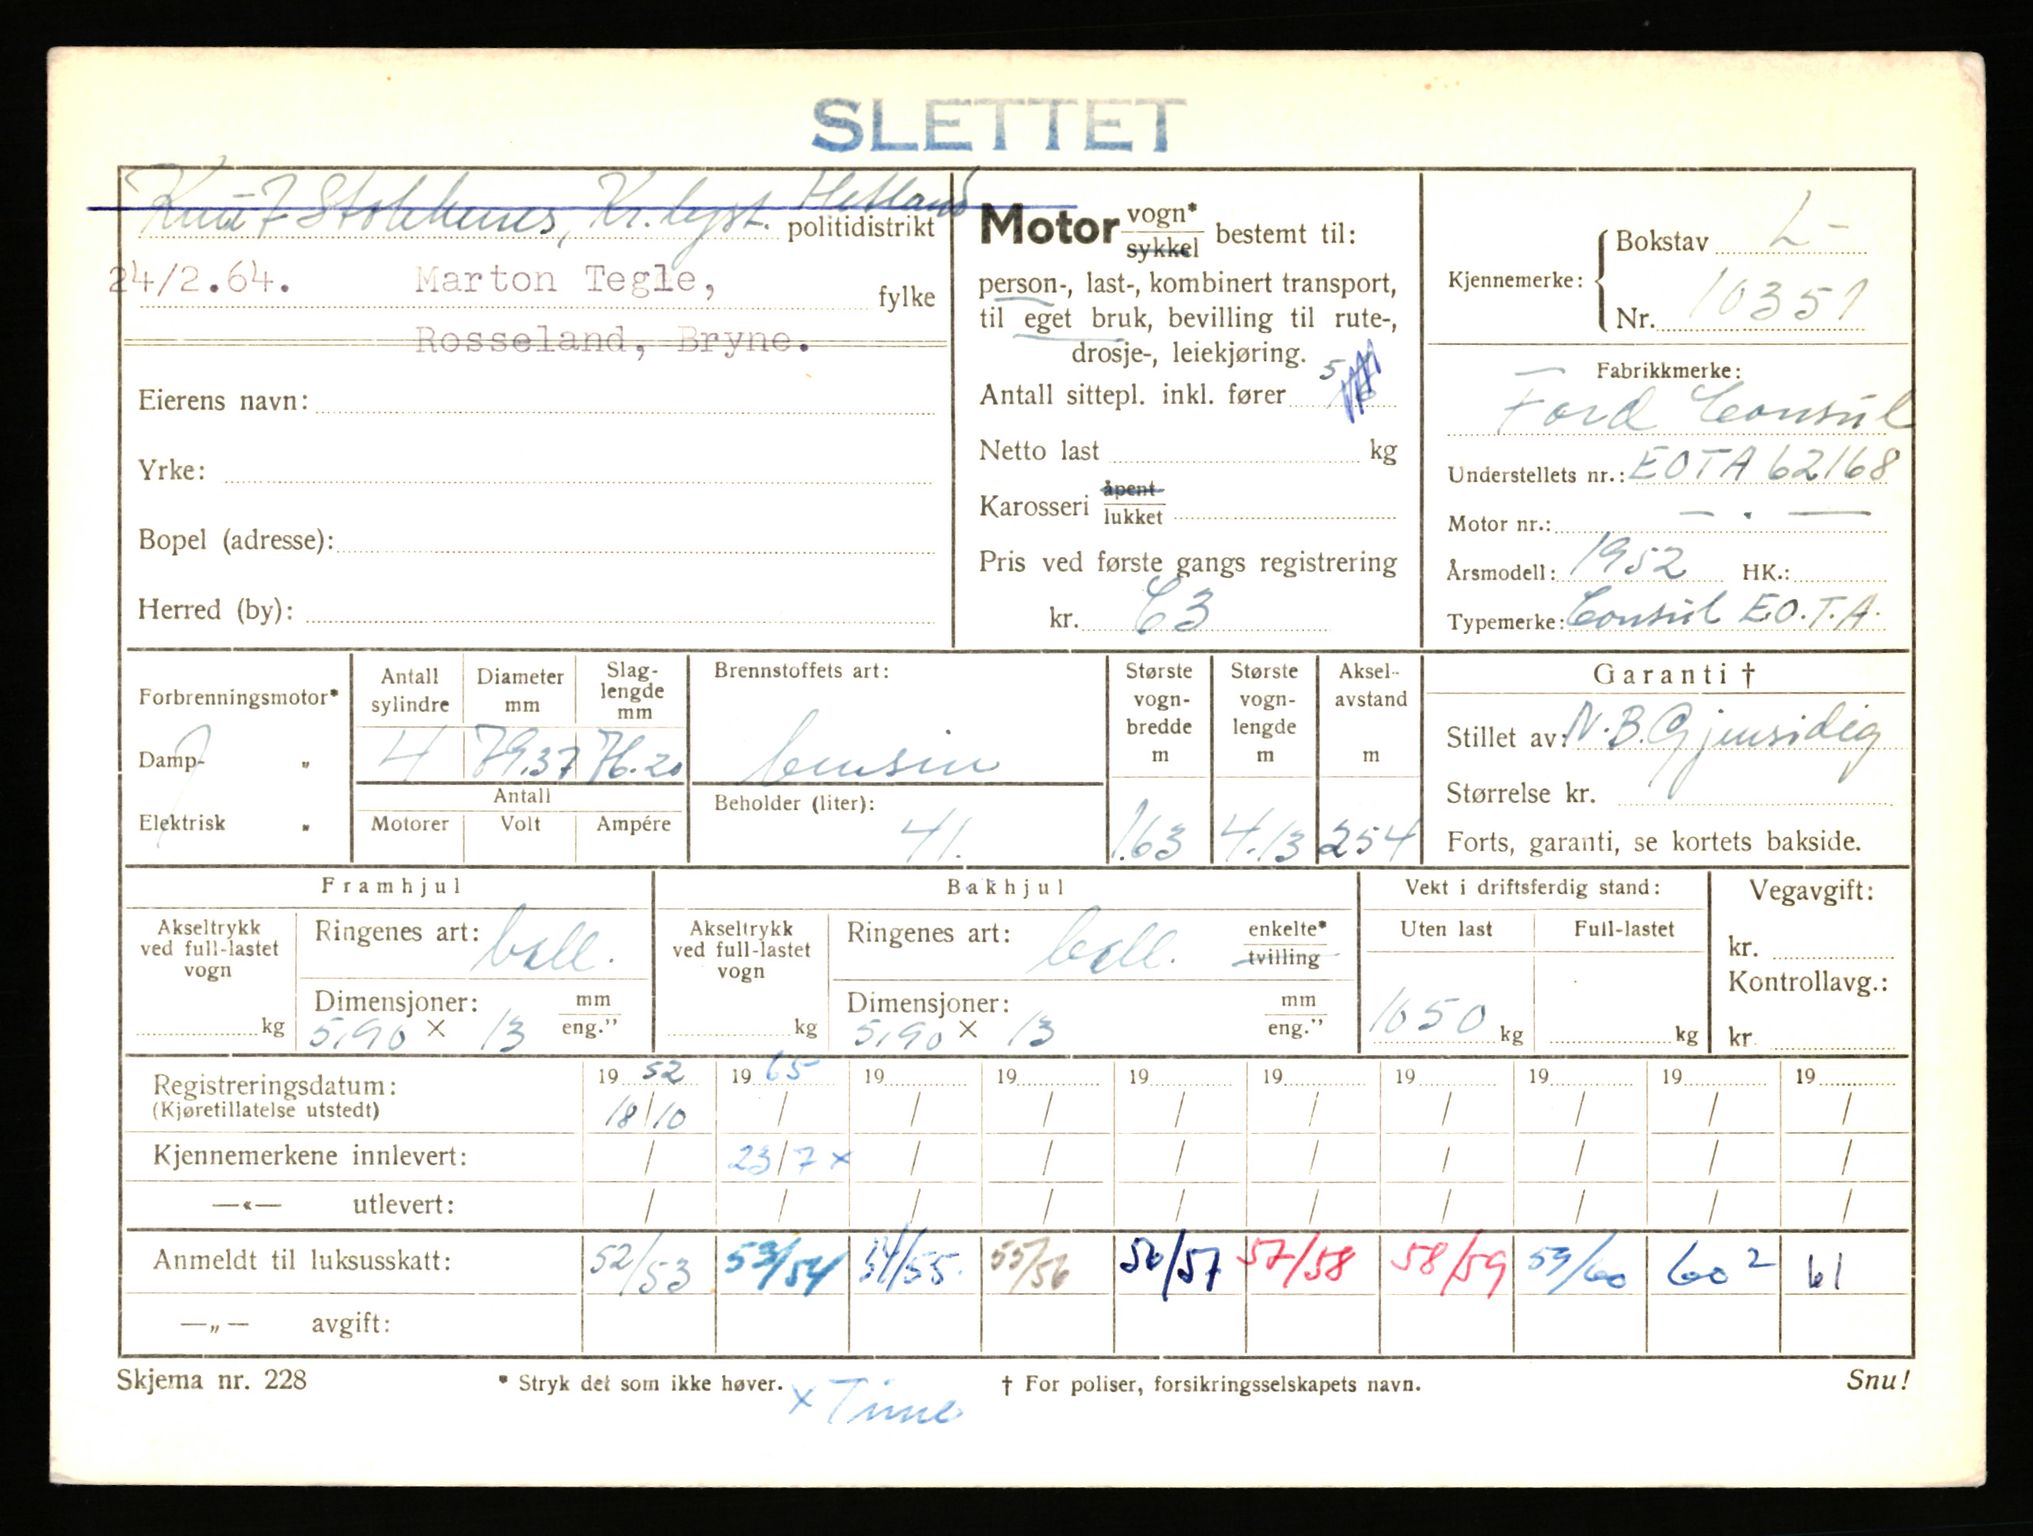 SLETTET
Knut Stokkenes, Kr. lyst. Hetland
politidistrikt
24/2.64. Marton Tegle,
fylke
Rosseland, Bryne.
Eierens navn:
Yrke:
Bopel (adresse):
Herred (by):
Motor vogn* sykkel bestemt til:
person-, last-, kombinert transport,
til eget bruk, bevilling til rute-,
drosje-, leiekjøring.
Antall sittepl. inkl. fører 5
Netto last kg
Karosseri åpent lukket
Pris ved første gangs registrering
kr. C3
Kjennemerke: Bokstav L-
Nr. 10351
Fabrikkmerke:
Ford Consul
Understellets nr.: EOTA 62168
Motor nr.: — . —
Årsmodell: 1952 HK.:
Typemerke: Consul EO.T.A.
Forbrenningsmotor*
Damp- „
Elektrisk „
Antall sylindre
Diameter mm
Slag-lengde mm
4 79.37 76.20
Antall
Motorer Volt Ampére
Brennstoffets art:
bensin
Beholder (liter):
41.
Største vogn-bredde m
1.63
Største vogn-lengde m
4.13
Aksel-avstand m
254
Garanti †
Stillet av: N.B.Gjensidig
Størrelse kr.
Forts, garanti, se kortets bakside.
Framhjul
Akseltrykk ved full-lastet vogn
kg
Ringenes art: ball.
Dimensjoner: mm eng."
5,90 x 13
Bakhjul
Akseltrykk ved full-lastet vogn
kg
Ringenes art: ball. enkelte* tvilling
Dimensjoner: mm eng."
5,90 x 13
Vekt i driftsferdig stand:
Uten last Full-lastet
1050 kg kg
Vegavgift:
kr.
Kontrollavg.:
kr.
Registreringsdatum: 1952 1965 19 19 19 19 19 19 19 19
(Kjøretillatelse utstedt) 18/10 / / / / / / / / /
Kjennemerkene innlevert: / 23/7 x / / / / / / / /
—«— utlevert: / / / / / / / / / /
Anmeldt til luksusskatt: 52/53 53/54 54/55. 55/56 56/57 57/58 58/59 59/60 60 2 61
—„— avgift:
Skjema nr. 228 * Stryk det som ikke høver. † For poliser, forsikringsselskapets navn. Snu!
x Time